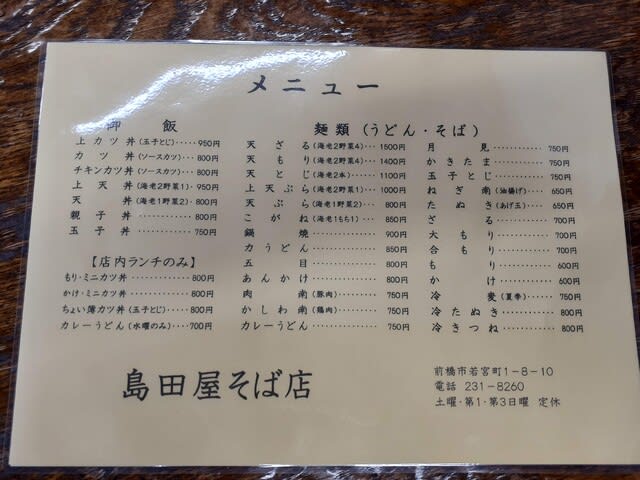 メニュー
御飯
上カツ丼(玉子とじ)‥‥‥950円
カツ丼(ソースカツ)‥‥800円
チキンカツ丼(ソースカツ)‥‥800円
上天丼(海老2野菜1)‥‥950円
天丼(海老1野菜2)‥‥800円
親子丼‥‥‥‥‥‥800円
玉子丼‥‥‥‥‥‥750円
【店内ランチのみ】
もり・ミニカツ丼‥‥‥‥‥‥800円
かけ・ミニカツ丼‥‥‥‥‥‥800円
ちょい簿カツ丼(玉子とじ)‥‥‥800円
カレーうどん(水曜のみ)‥‥‥700円
麺類(うどん・そば)
天ざる(海老2野菜4)‥‥1500円
天もり(海老2野菜4)‥‥1400円
天とじ(海老2本)‥‥1100円
上天ぷら(海老2野菜1)‥‥1000円
天ぷら(海老1野菜2)‥‥800円
こがね(海老1もち1)‥‥850円
鍋焼‥‥‥‥‥‥900円
力うどん‥‥‥‥‥‥850円
五目‥‥‥‥‥‥800円
あんかけ‥‥‥‥‥‥800円
肉南(豚肉)‥‥‥‥750円
かしわ南(鶏肉)‥‥‥‥750円
カレーうどん‥‥‥‥‥‥750円
月見‥‥‥‥‥‥750円
かきたま‥‥‥‥‥‥750円
玉子とじ‥‥‥‥‥‥750円
ねぎ南(油揚げ)‥‥‥650円
たぬき(あげ玉)‥‥‥650円
ざる‥‥‥‥‥‥700円
大もり‥‥‥‥‥‥700円
合もり‥‥‥‥‥‥700円
もり‥‥‥‥‥‥600円
かけ‥‥‥‥‥‥600円
冷麦(夏季)‥‥‥750円
冷たぬき‥‥‥‥‥‥800円
冷きつね‥‥‥‥‥‥800円
島田屋そば店
前橋市若宮町1-8-10
電話 231-8260
土曜・第1・第3日曜 定休